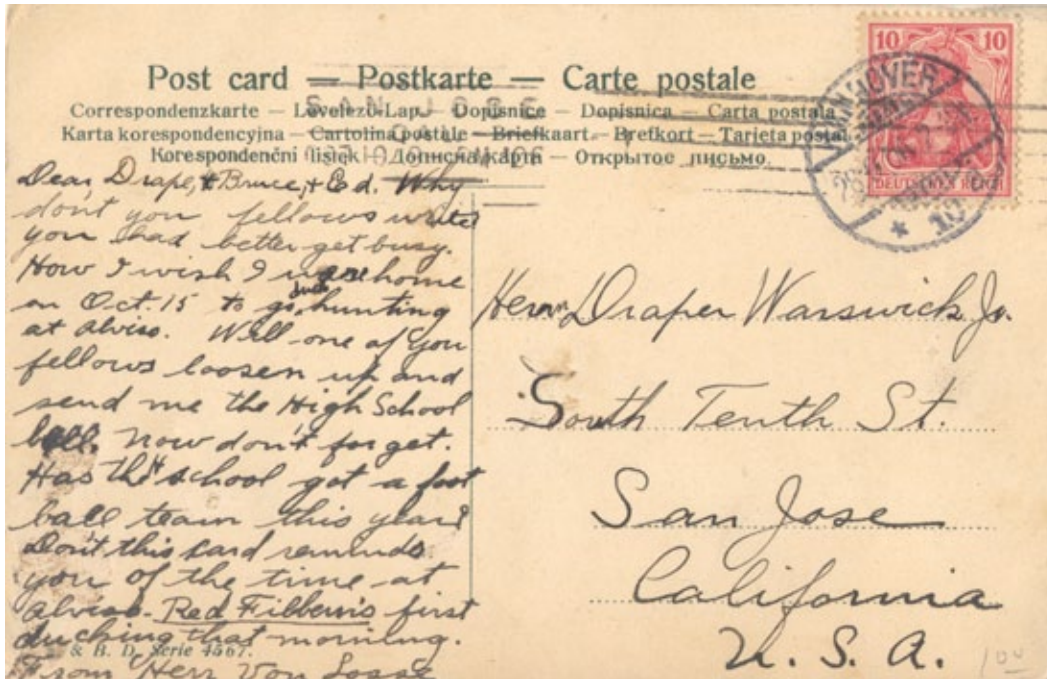 Post card — Postkarte — Carte postale
Correspondenzkarte – Levelező-Lap – Dopisnice – Dopisnica – Carta postala
Karta korespondencyjna – Cartolina postale – Briefkaart – Brefkort – Tarjeta postal
Korespondenční lístek – Дописна карта – Открытое письмо.
SAN JOSE
CAL.
10 10
HANNOVER
DEUTSCHES REICH
Dear Drape, & Bruce, & Ed. Why
don't you fellows write
you had better get busy.
How I wish I were home
on Oct. 15 to go duck hunting
at Alviso. Will one of you
fellows loosen up and
send me the High School
Bell. Now don't forget.
Has the H school got a foot
ball team this year?
Don't this card reminds
you of the time at
Alviso. Red Filben's first
ducking that morning.
& B. D. Serie 4567.
From Herr Von Losse
Herrn Draper Warswick Jr.
South Tenth St.
San Jose
California
U. S. A.
100